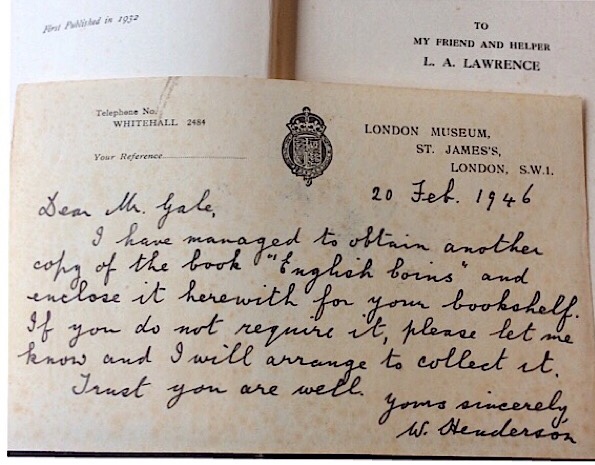 First Published in 1932
TO
MY FRIEND AND HELPER
L. A. LAWRENCE
Telephone No.
WHITEHALL 2484
Your Reference
LONDON MUSEUM,
ST. JAMES'S,
LONDON, S.W.1.
20 Feb. 1946
Dear Mr. Gale,
I have managed to obtain another
copy of the book "English Coins" and
enclose it herewith for your bookshelf.
If you do not require it, please let me
know and I will arrange to collect it.
Trust you are well.
yours sincerely,
W. Henderson